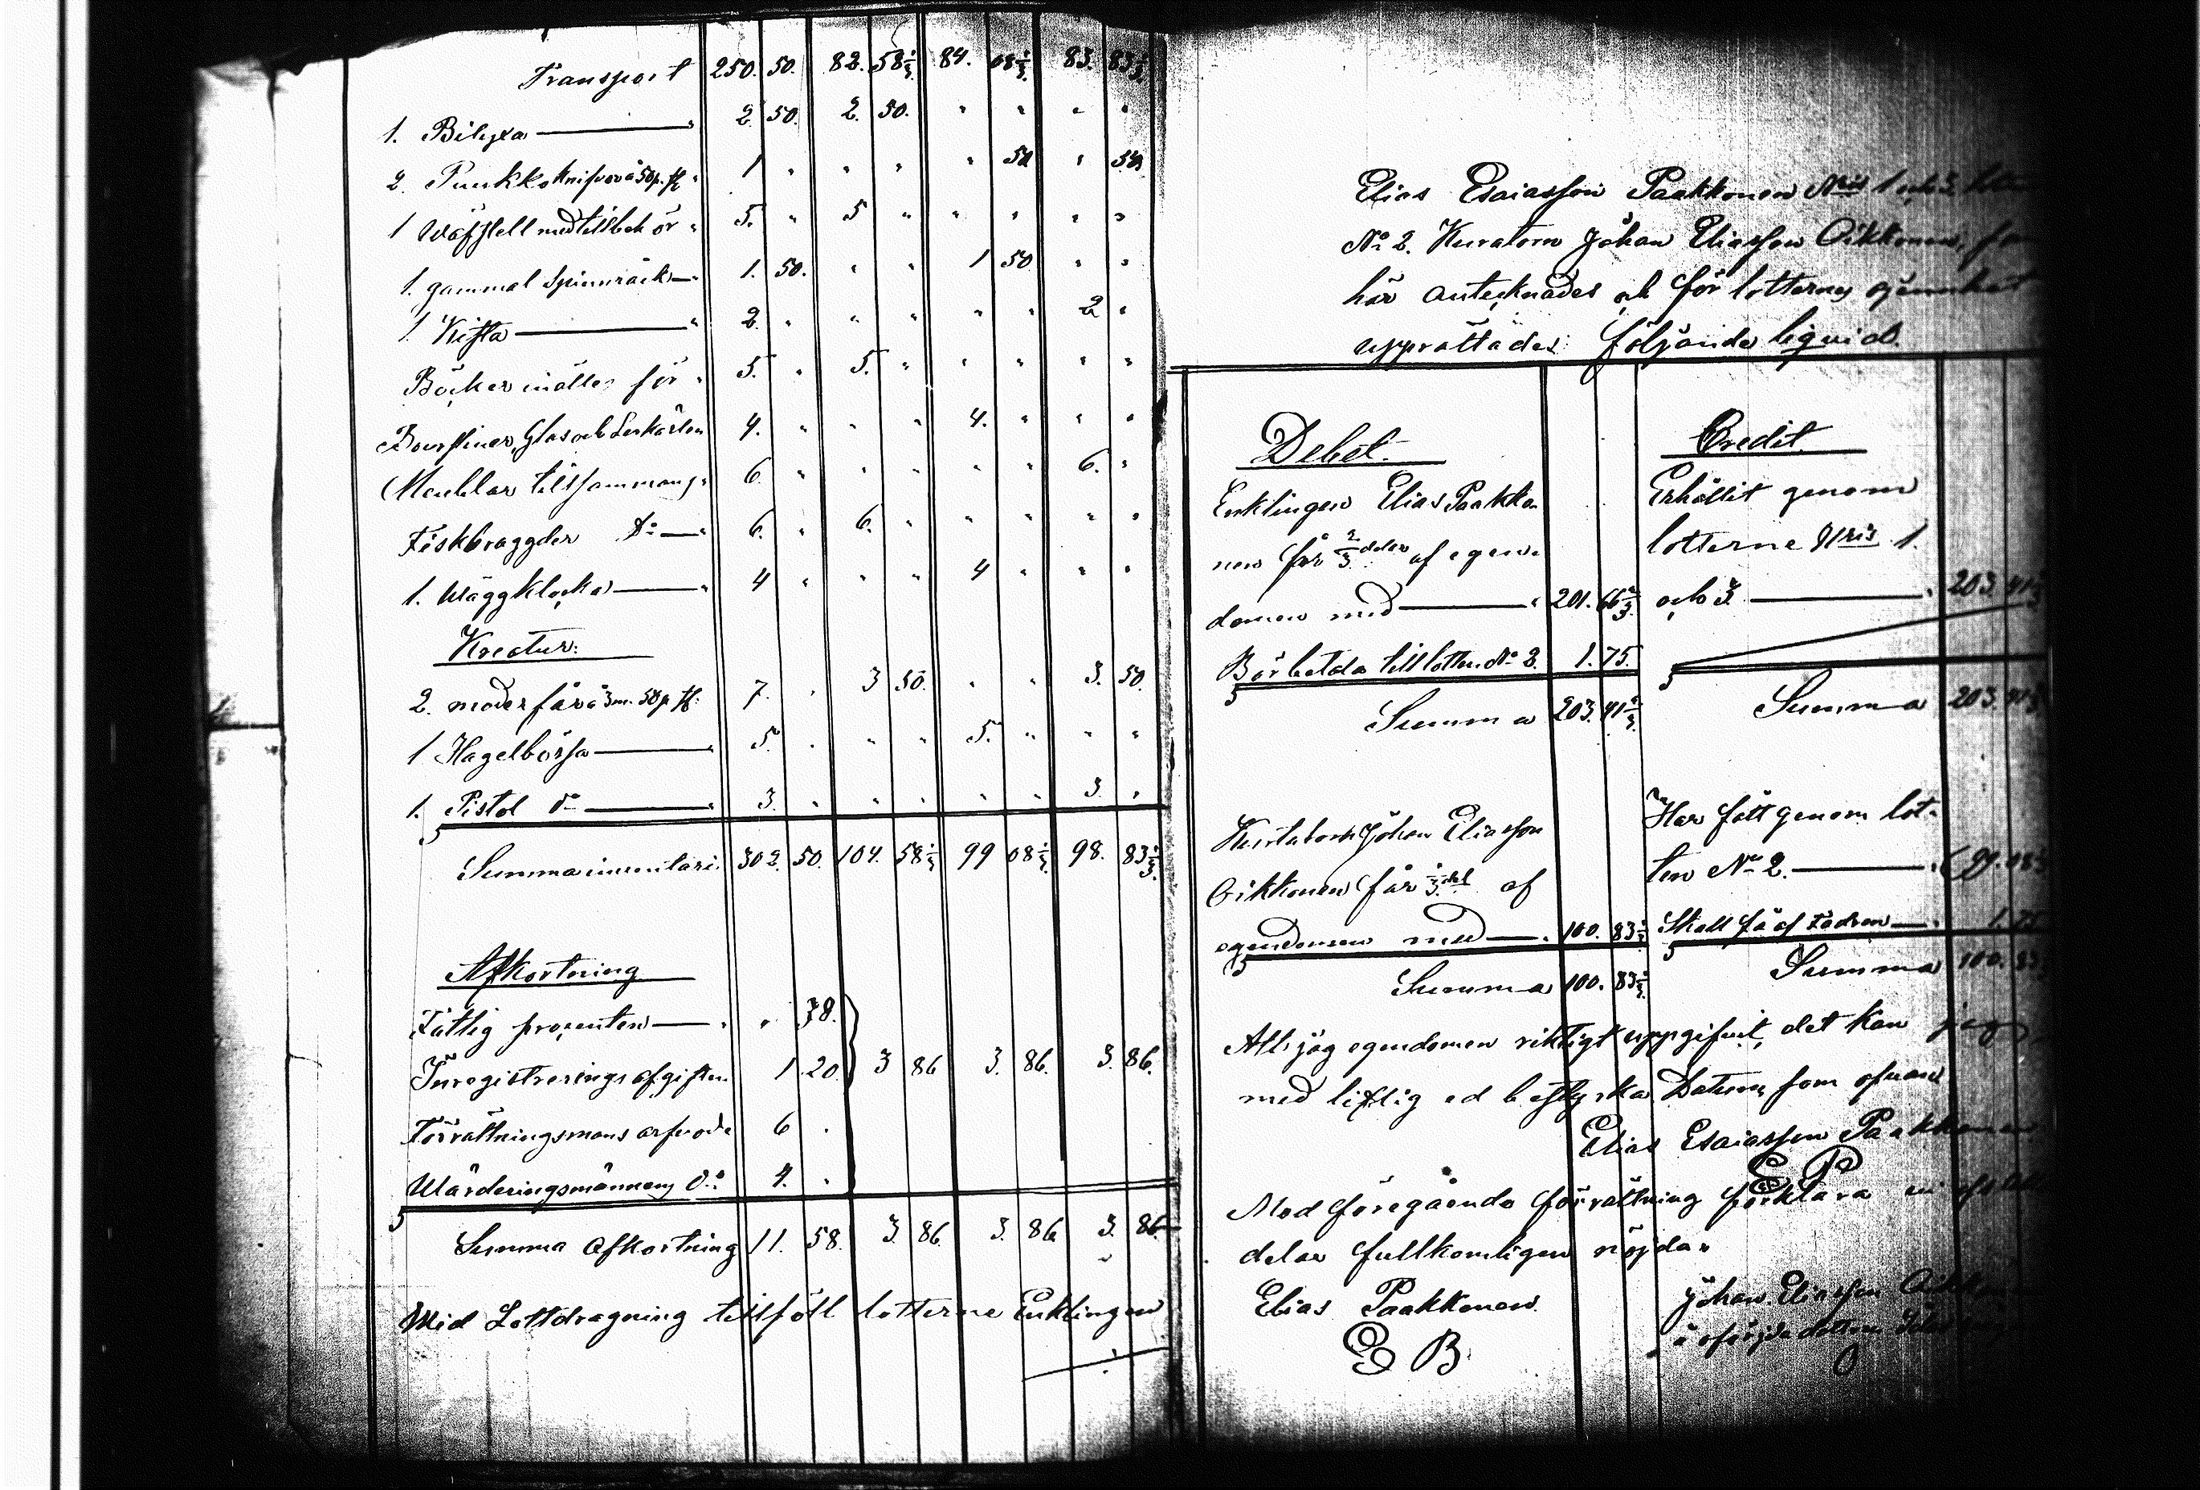 Transport 250. 50. 82. 58 1/3. 84. 08 1/3. 83. 83 1/3.
1. Bilyxa — " 2 50. 2. 50. " " " "
2. Puukko knifvar à 50 p. st. " 1 " " " " 50 " 50
1 Wäfstell med tillbehör " 5. " 5 " " " " "
1. gammal Spinnråck — " 1. 50. " " 1 50 " "
1. Kista — " 2. " " " " " 2 "
Böcker inalles för " 5. " 5. " " " " "
Glas och Lerkärlen 4. " " " 4. " " "
Meublar tillsammans " 6. " " " " " 6. "
Fiskbraggder do — " 6. " 6. " " " " "
1. Wäggklocka — " 4 " " " 4 " " "
Kreatur:
2. moderfår à 3 m. 50 p. st. 7. " 3 50. " " 3. 50.
1 Hagelbössa — " 5. " " " 5. " " "
1. Pistol do — " 3. " " " " " 3. "
Summa inventarii 302. 50. 104. 58 1/3 99 08 1/3 98. 83 1/3.
Afkortning
Fattig procenten — " " 38.
Inregistrerings afgiften 1 20. 3 86 3. 86. 3. 86.
Förrättningsmans arfvode 6 "
Wärderingsmännens do 4. "
Summa Afkortning 11. 58. 3 86. 3. 86 3. 86
Wid Lottdragning tillföll lotterne Enklingen
Elias Esaiasson Paakkonen Nris 1 och 3.
No 2. Kuratorn Johan Eliasson Oikkonen,
här antecknades och för lotternes
upprättades följande liquid.
Debet.
Enklingen Elias Paakko-
nen får 2/3 delar af egen-
domen med — " 201. 66 2/3.
Bör betala till lotten No 2. 1. 75.
Summa 203. 41 2/3.
Credit.
Erhållit genom
lotterne Nris 1.
och 3 — " 203. 41
Summa 203. 41
Johan Eliasson
Oikkonen får 1/3 del af
egendomen med — " 100. 83 1/3
Summa 100. 83 1/3.
Har fått genom lot-
ten No 2. —
Skall få af fadren — " 1. 75
Summa 100. 83
Att jag egendomen riktigt uppgifvit, det kan jag
med liflig ed bestyrka Datum som ofvan
Elias Esaiasson Paakkonen
E P
Med föregående förrättning förklara vi
delar fullkomligen nöjda.
Elias Paakkonen.
E B
Johan Eliasson